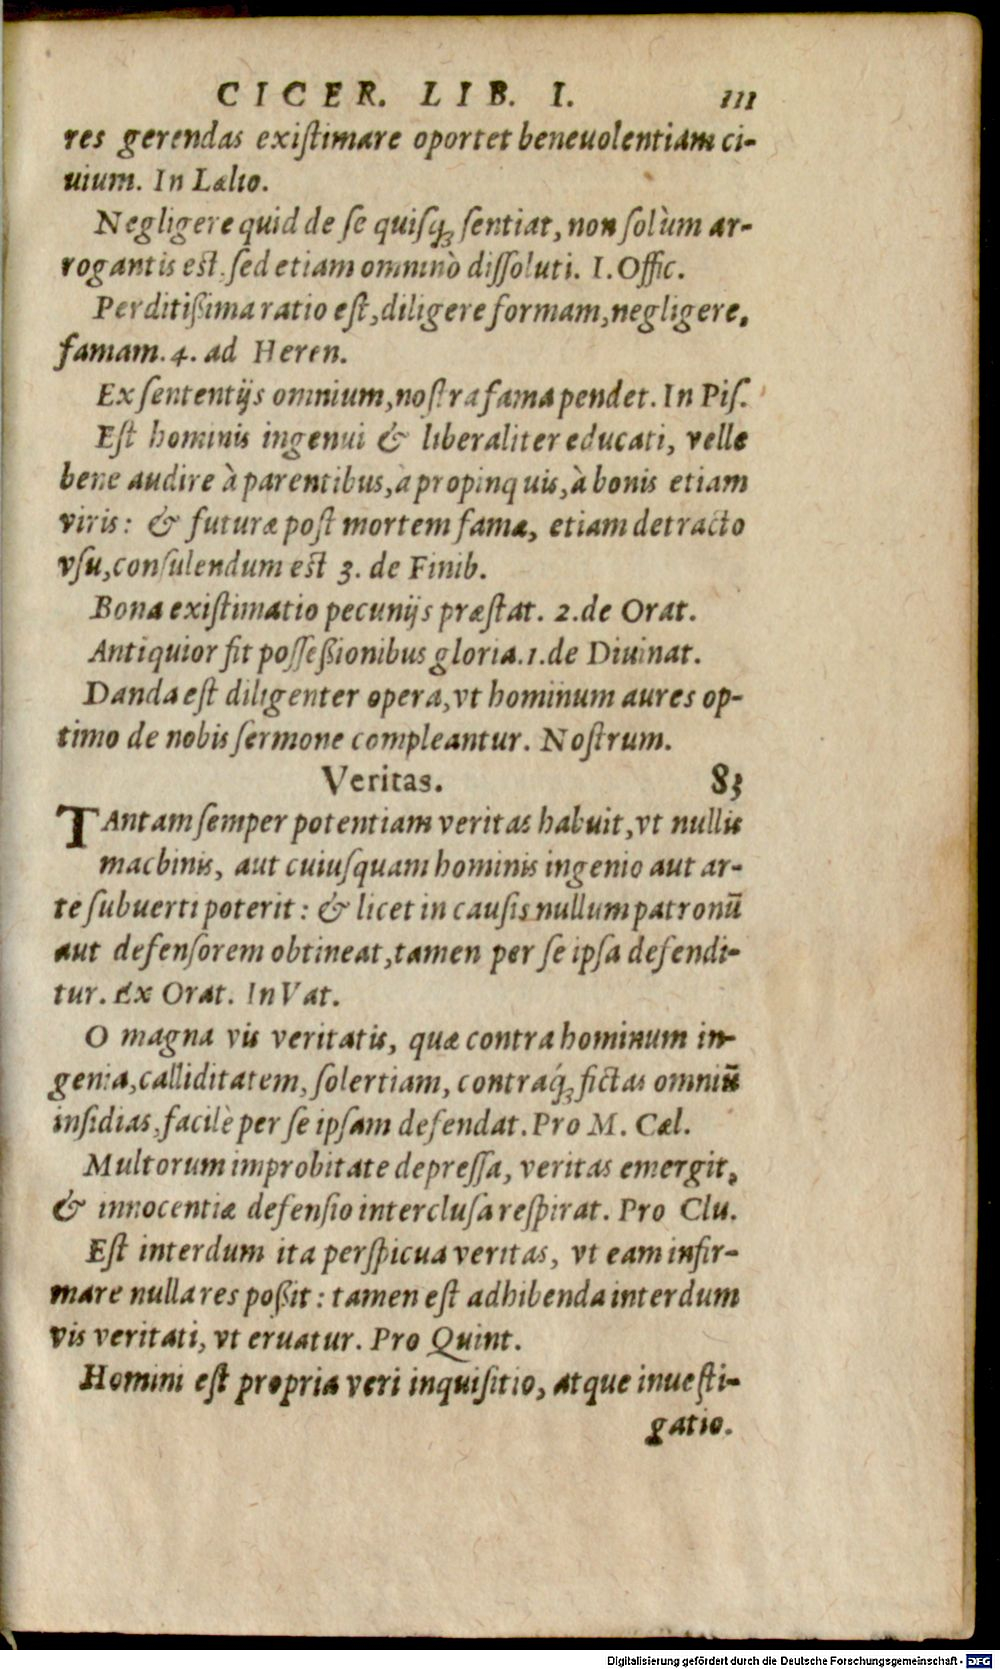 CICER. LIB. I. 111
res gerendas exiſtimare oportet beneuolentiam ci-
uium. In Lælio.
Negligere quid de ſe quiſq; ſentiat, non ſolùm ar-
rogantis est, ſed etiam omninò diſſoluti. I. Offic.
Perditißima ratio eſt, diligere formam, negligere,
famam. 4. ad Heren.
Ex ſententijs omnium, noſtra fama pendet. In Piſ.
Eſt hominis ingenui & liberaliter educati, velle
bene audire à parentibus, à propinquis, à bonis etiam
viris: & futuræ poſt mortem famæ, etiam detracto
vſu, conſulendum est 3. de Finib.
Bona exiſtimatio pecunijs præſtat. 2. de Orat.
Antiquior ſit poſſeßionibus gloria. 1. de Diuinat.
Danda eſt diligenter opera, vt hominum aures op-
timo de nobis ſermone compleantur. Noſtrum.
Veritas. 83
TAntam ſemper potentiam veritas habuit, vt nullis
machinis, aut cuiuſquam hominis ingenio aut ar-
te ſubuerti poterit: & licet in cauſis nullum patronū
aut defenſorem obtineat, tamen per ſe ipſa defendi-
tur. Ex Orat. In Vat.
O magna vis veritatis, quæ contra hominum in-
genia, calliditatem, ſolertiam, contraq́; fictas omniū
inſidias, facilè per ſe ipſam defendat. Pro M. Cæl.
Multorum improbitate depreſſa, veritas emergit,
& innocentiæ defenſio interclusa reſpirat. Pro Clu.
Eſt interdum ita perſpicua veritas, vt eam infir-
mare nulla res poßit: tamen eſt adhibenda interdum
vis veritati, vt eruatur. Pro Quint.
Homini eſt propria veri inquiſitio, atque inueſti-
gatio.
Digitalisierung gefördert durch die Deutsche Forschungsgemeinschaft - DFG